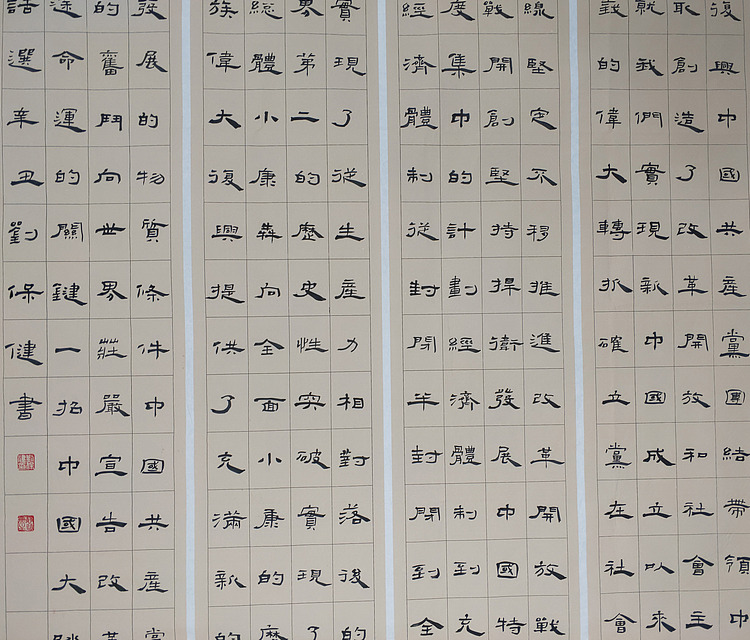 復興中國共產黨團結帶領中
取創造了改革開放和社會主
就我們實現新中國成立以來
義的偉大轉折確立黨在社會
線堅定不移推進改革開放戰
戰開創堅持捍衛發展中國特
度集中的計劃經濟體制到充
經濟體制從封閉半封閉到全
實現了從生產力相對落後的
界第二的歷史性突破實現了
總體小康犇向全面小康的歷
族偉大復興提供了充滿新的
發展的物質條件中國共產黨
的奮鬥向世界莊嚴宣告改革
途命運的關鍵一招中國大踏
話選辛丑劉保健書